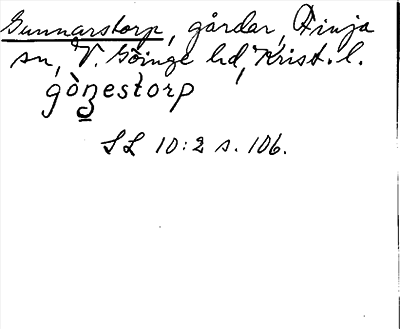 Gunnarstorp, gårdar, Finja
sn, V. Göinge hd, Krist. l.
gònestorp
SL 10:2 s. 106.